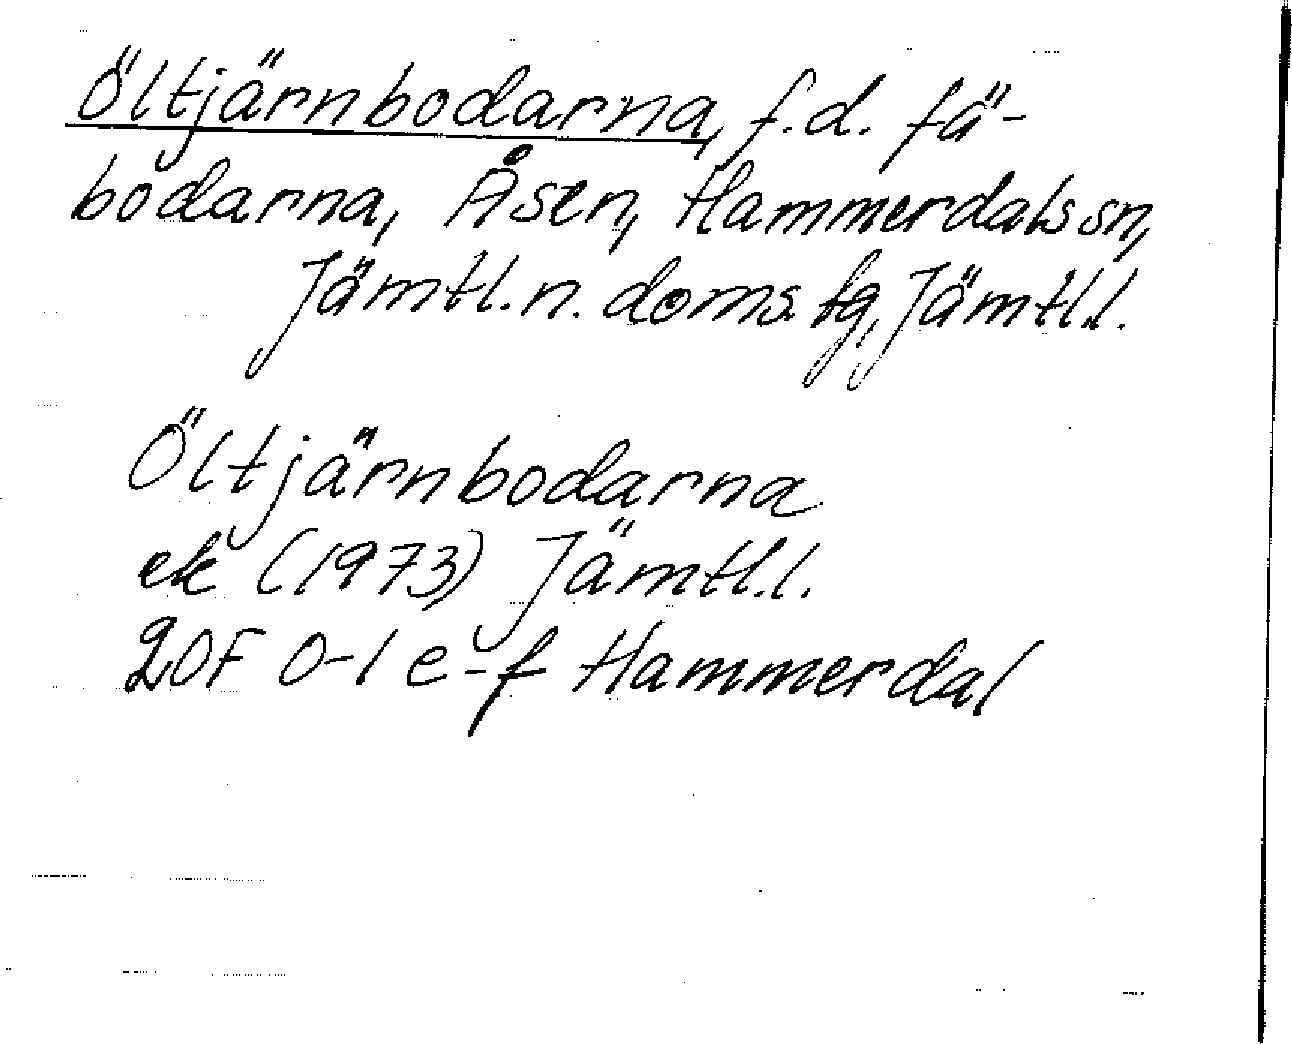 Öltjärnbodarna, f.d. fä-
bodarna, Åsen, Hammerdals sn,
Jämtl. n. doms. tg, Jämtl.l.
Öltjärnbodarna
ek (1973) Jämtl.l.
20F 0-1 e-f Hammerdal